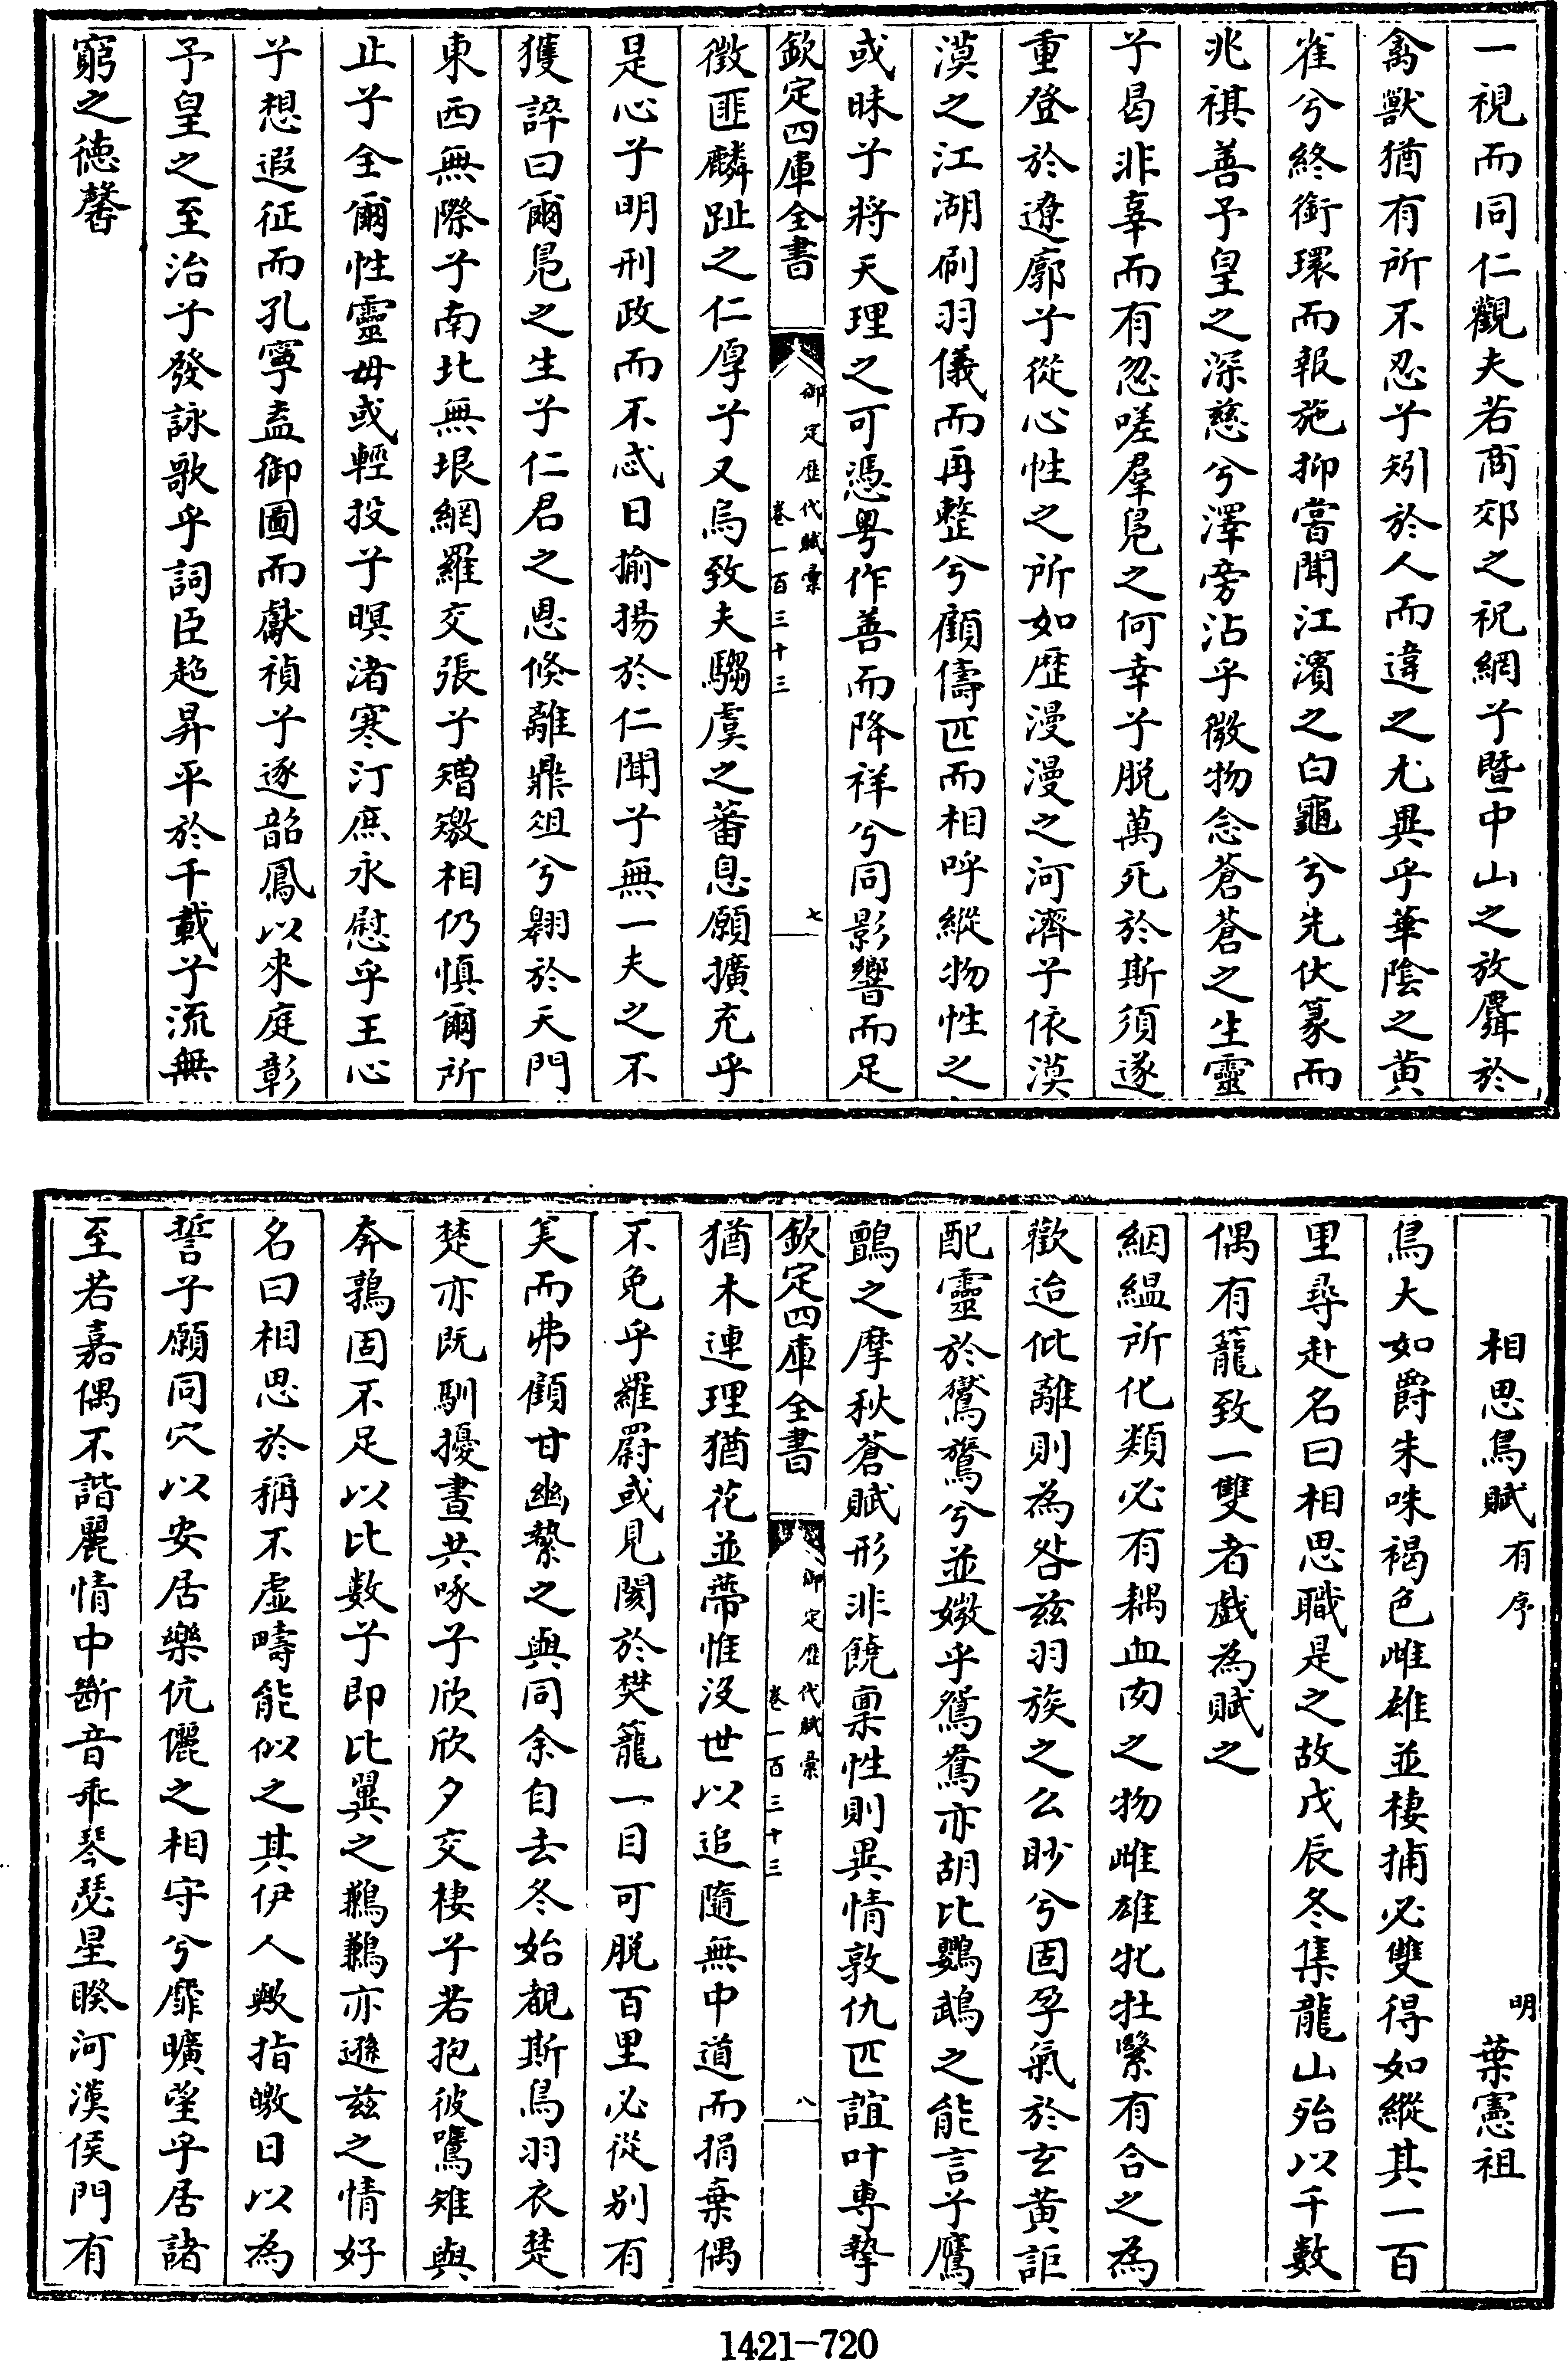 一視而同仁觀夫若商郊之祝網兮暨中山之放麛於
禽獸猶有所不忍兮矧於人而違之尤異乎華陰之黄
雀兮終銜環而報施抑嘗聞江濱之白龜兮先伏篆而
兆祺善予皇之深慈兮澤旁沾乎微物念蒼蒼之生靈
兮曷非辜而有忽嗟羣鳬之何幸兮脱萬死於斯須遂
重登於遼廓兮從心性之所如歴漫漫之河濟兮依漠
漠之江湖刷羽儀而再整兮顧儔匹而相呼縱物性之
或昧兮將天理之可憑粤作善而降祥兮同影響而足
欽定四庫全書
御定歴代賦彙
卷一百三十三
七
徵匪麟趾之仁厚兮又烏致夫騶虞之蕃息願擴充乎
是心兮明刑政而不忒日揄揚於仁聞兮無一夫之不
獲誶曰爾鳬之生兮仁君之恩倏離鼎俎兮翱於天門
東西無際兮南北無垠網羅交張兮矰繳相仍慎爾所
止兮全爾性靈毋或輕投兮暝渚寒汀庶永慰乎王心
兮想遐征而孔寧盍御圖而獻禎兮逐韶鳳以來庭彰
予皇之至治兮發詠歌乎詞臣趂昇平於千載兮流無
窮之徳馨
相思鳥賦 有序
明 葉憲祖
鳥大如爵朱咮褐色雌雄並棲捕必雙得如縱其一百
里尋赴名曰相思職是之故戊辰冬集龍山殆以千數
偶有籠致一雙者戲為賦之
絪縕所化類必有耦血肉之物雌雄牝牡繄有合之為
歡迨仳離則為咎兹羽族之么眇兮固孕氣於玄黄詎
配靈於鸑鷟兮並媺乎鴛鴦亦胡比鸚鵡之能言兮鷹
鸇之摩秋蒼賦形非饒稟性則異情敦仇匹誼叶専摯
欽定四庫全書
御定歴代賦彙
卷一百三十三
八
猶木連理猶花並蒂惟没世以追隨無中道而捐棄偶
不免乎羅罻或見閡於樊籠一目可脱百里必從别有
美而弗顧甘幽縶之與同余自去冬始覩斯鳥羽衣楚
楚亦既馴擾晝共啄兮欣欣夕交棲兮若抱彼鷕雉與
奔鶉固不足以比數兮即比翼之鶼鶼亦遜兹之情好
名曰相思於稱不虚疇能似之其伊人歟指皦日以為
誓兮願同穴以安居樂伉儷之相守兮靡曠望乎居諸
至若嘉偶不諧麗情中斷音乖琴瑟星暌河漢侯門有
1421-720